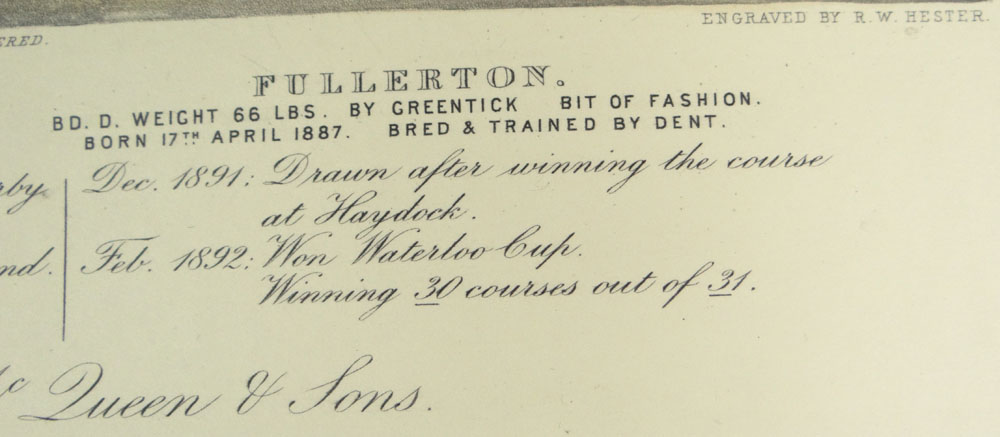 ENGRAVED BY R. W. HESTER.
FULLERTON.
BD. D. WEIGHT 66 LBS. BY GREENTICK BIT OF FASHION.
BORN 17TH APRIL 1887. BRED & TRAINED BY DENT.
Dec. 1891: Drawn after winning the course
at Haydock.
Feb. 1892: Won Waterloo Cup.
Winning 30 courses out of 31.
Queen & Sons.